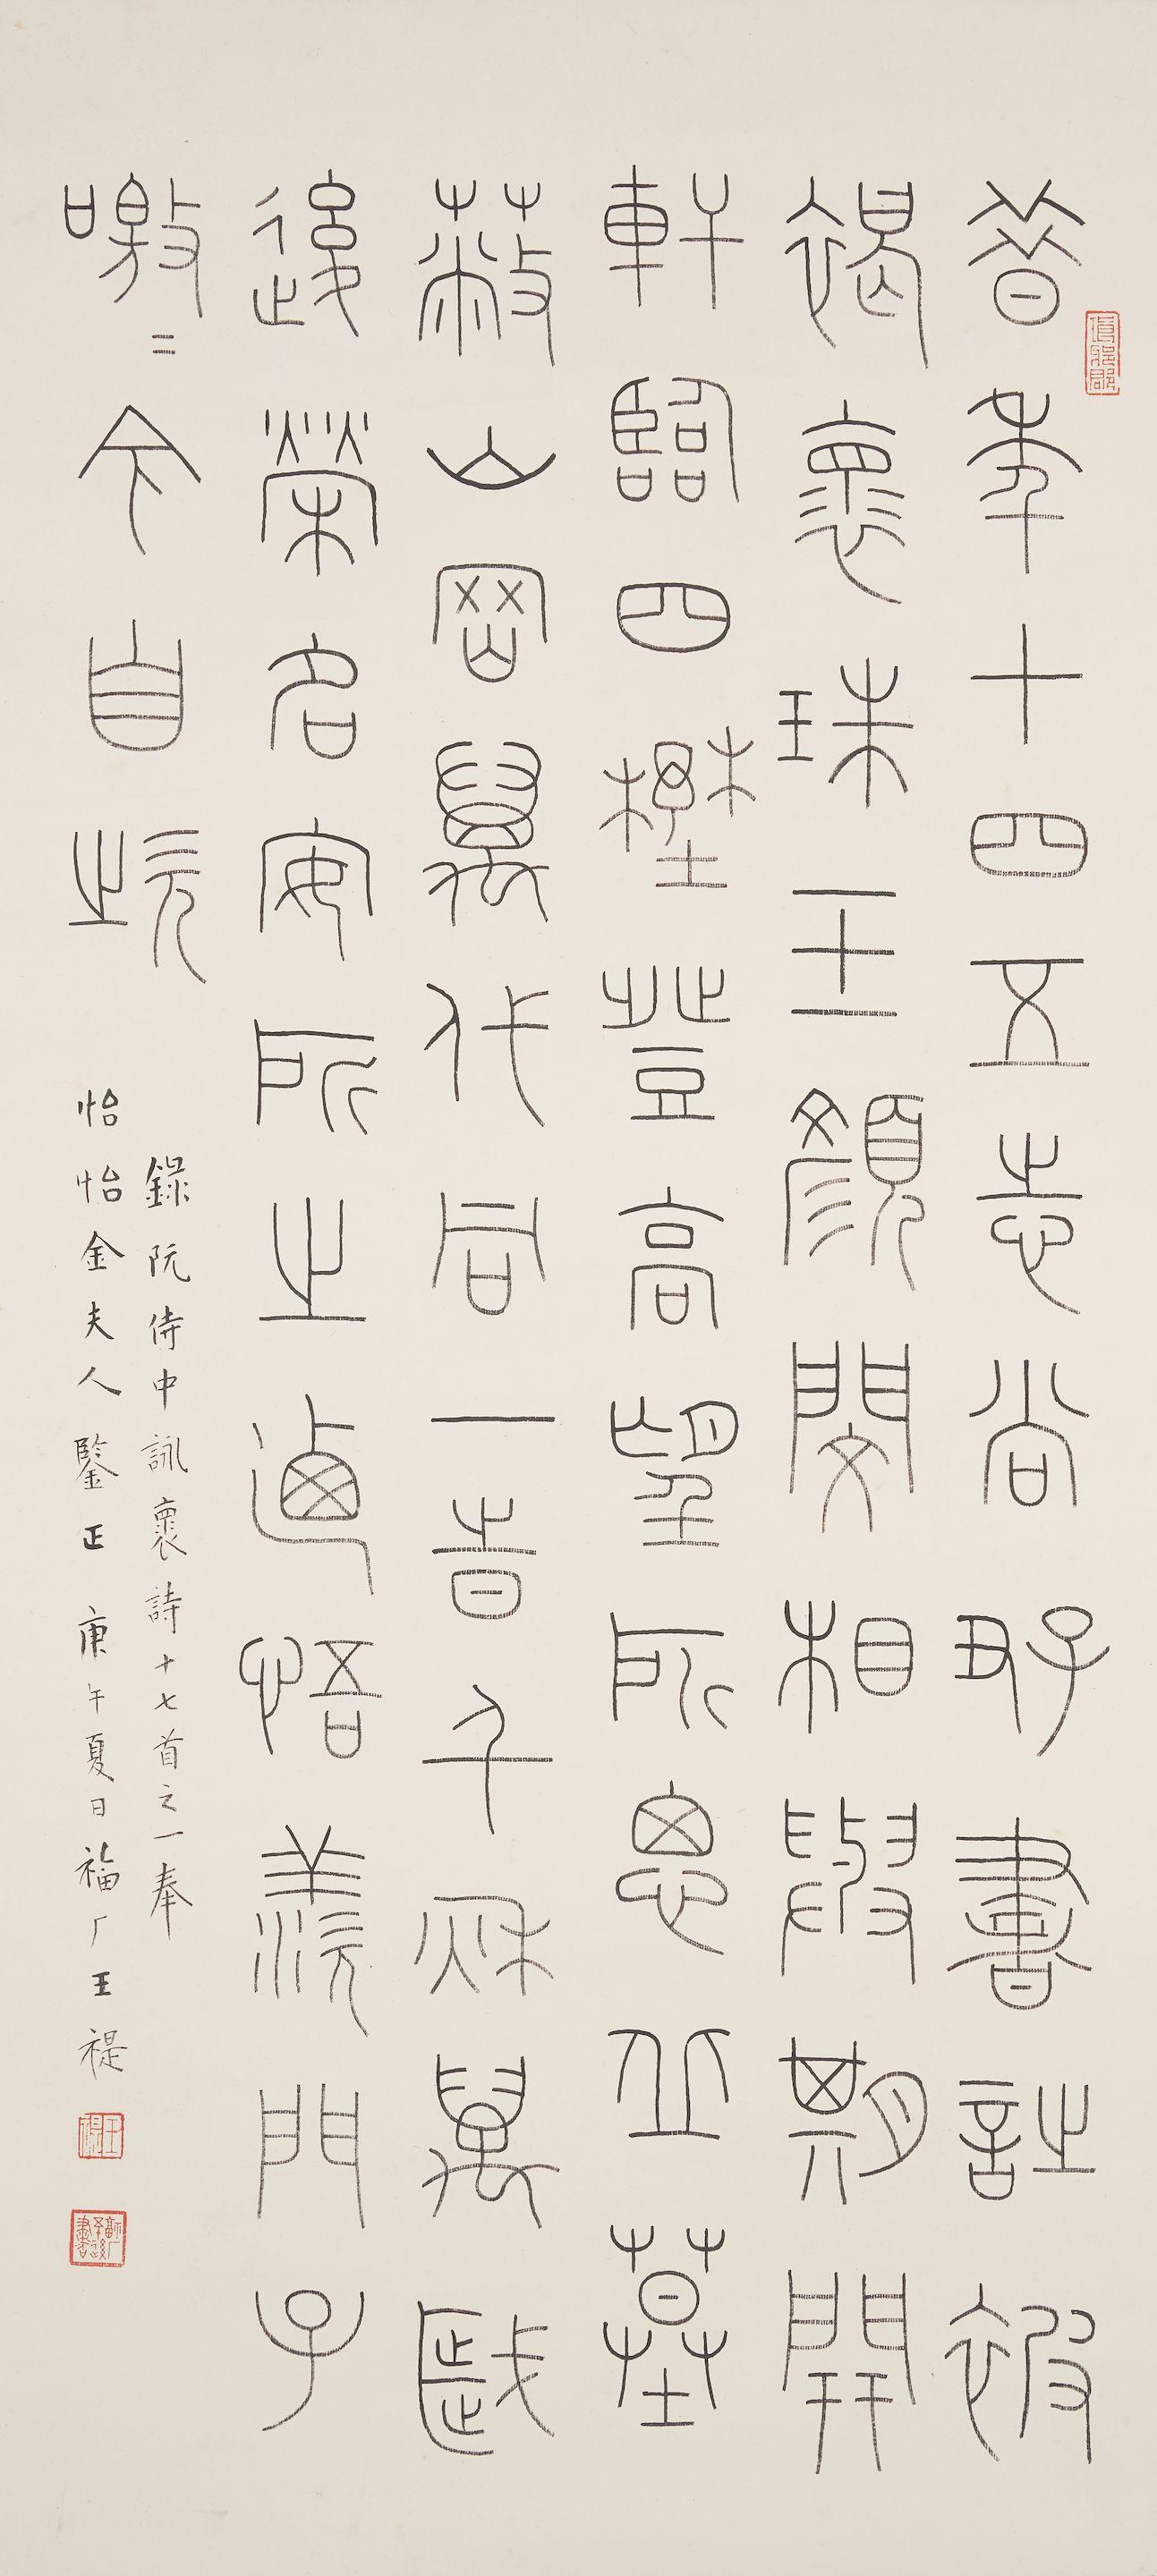 昔年十四五志尚好書詩被
褐褱珠玉顏閔相與期開
軒臨四壄登高望所思丘墓
蔽山岡萬代同一時千秋萬歲
後榮名安所之迺悟羨門子
噭〻今自嗤
錄阮侍中詠褱詩十七首之一奉
怡怡金夫人鑒正 庚午夏日福厂王禔
王禔